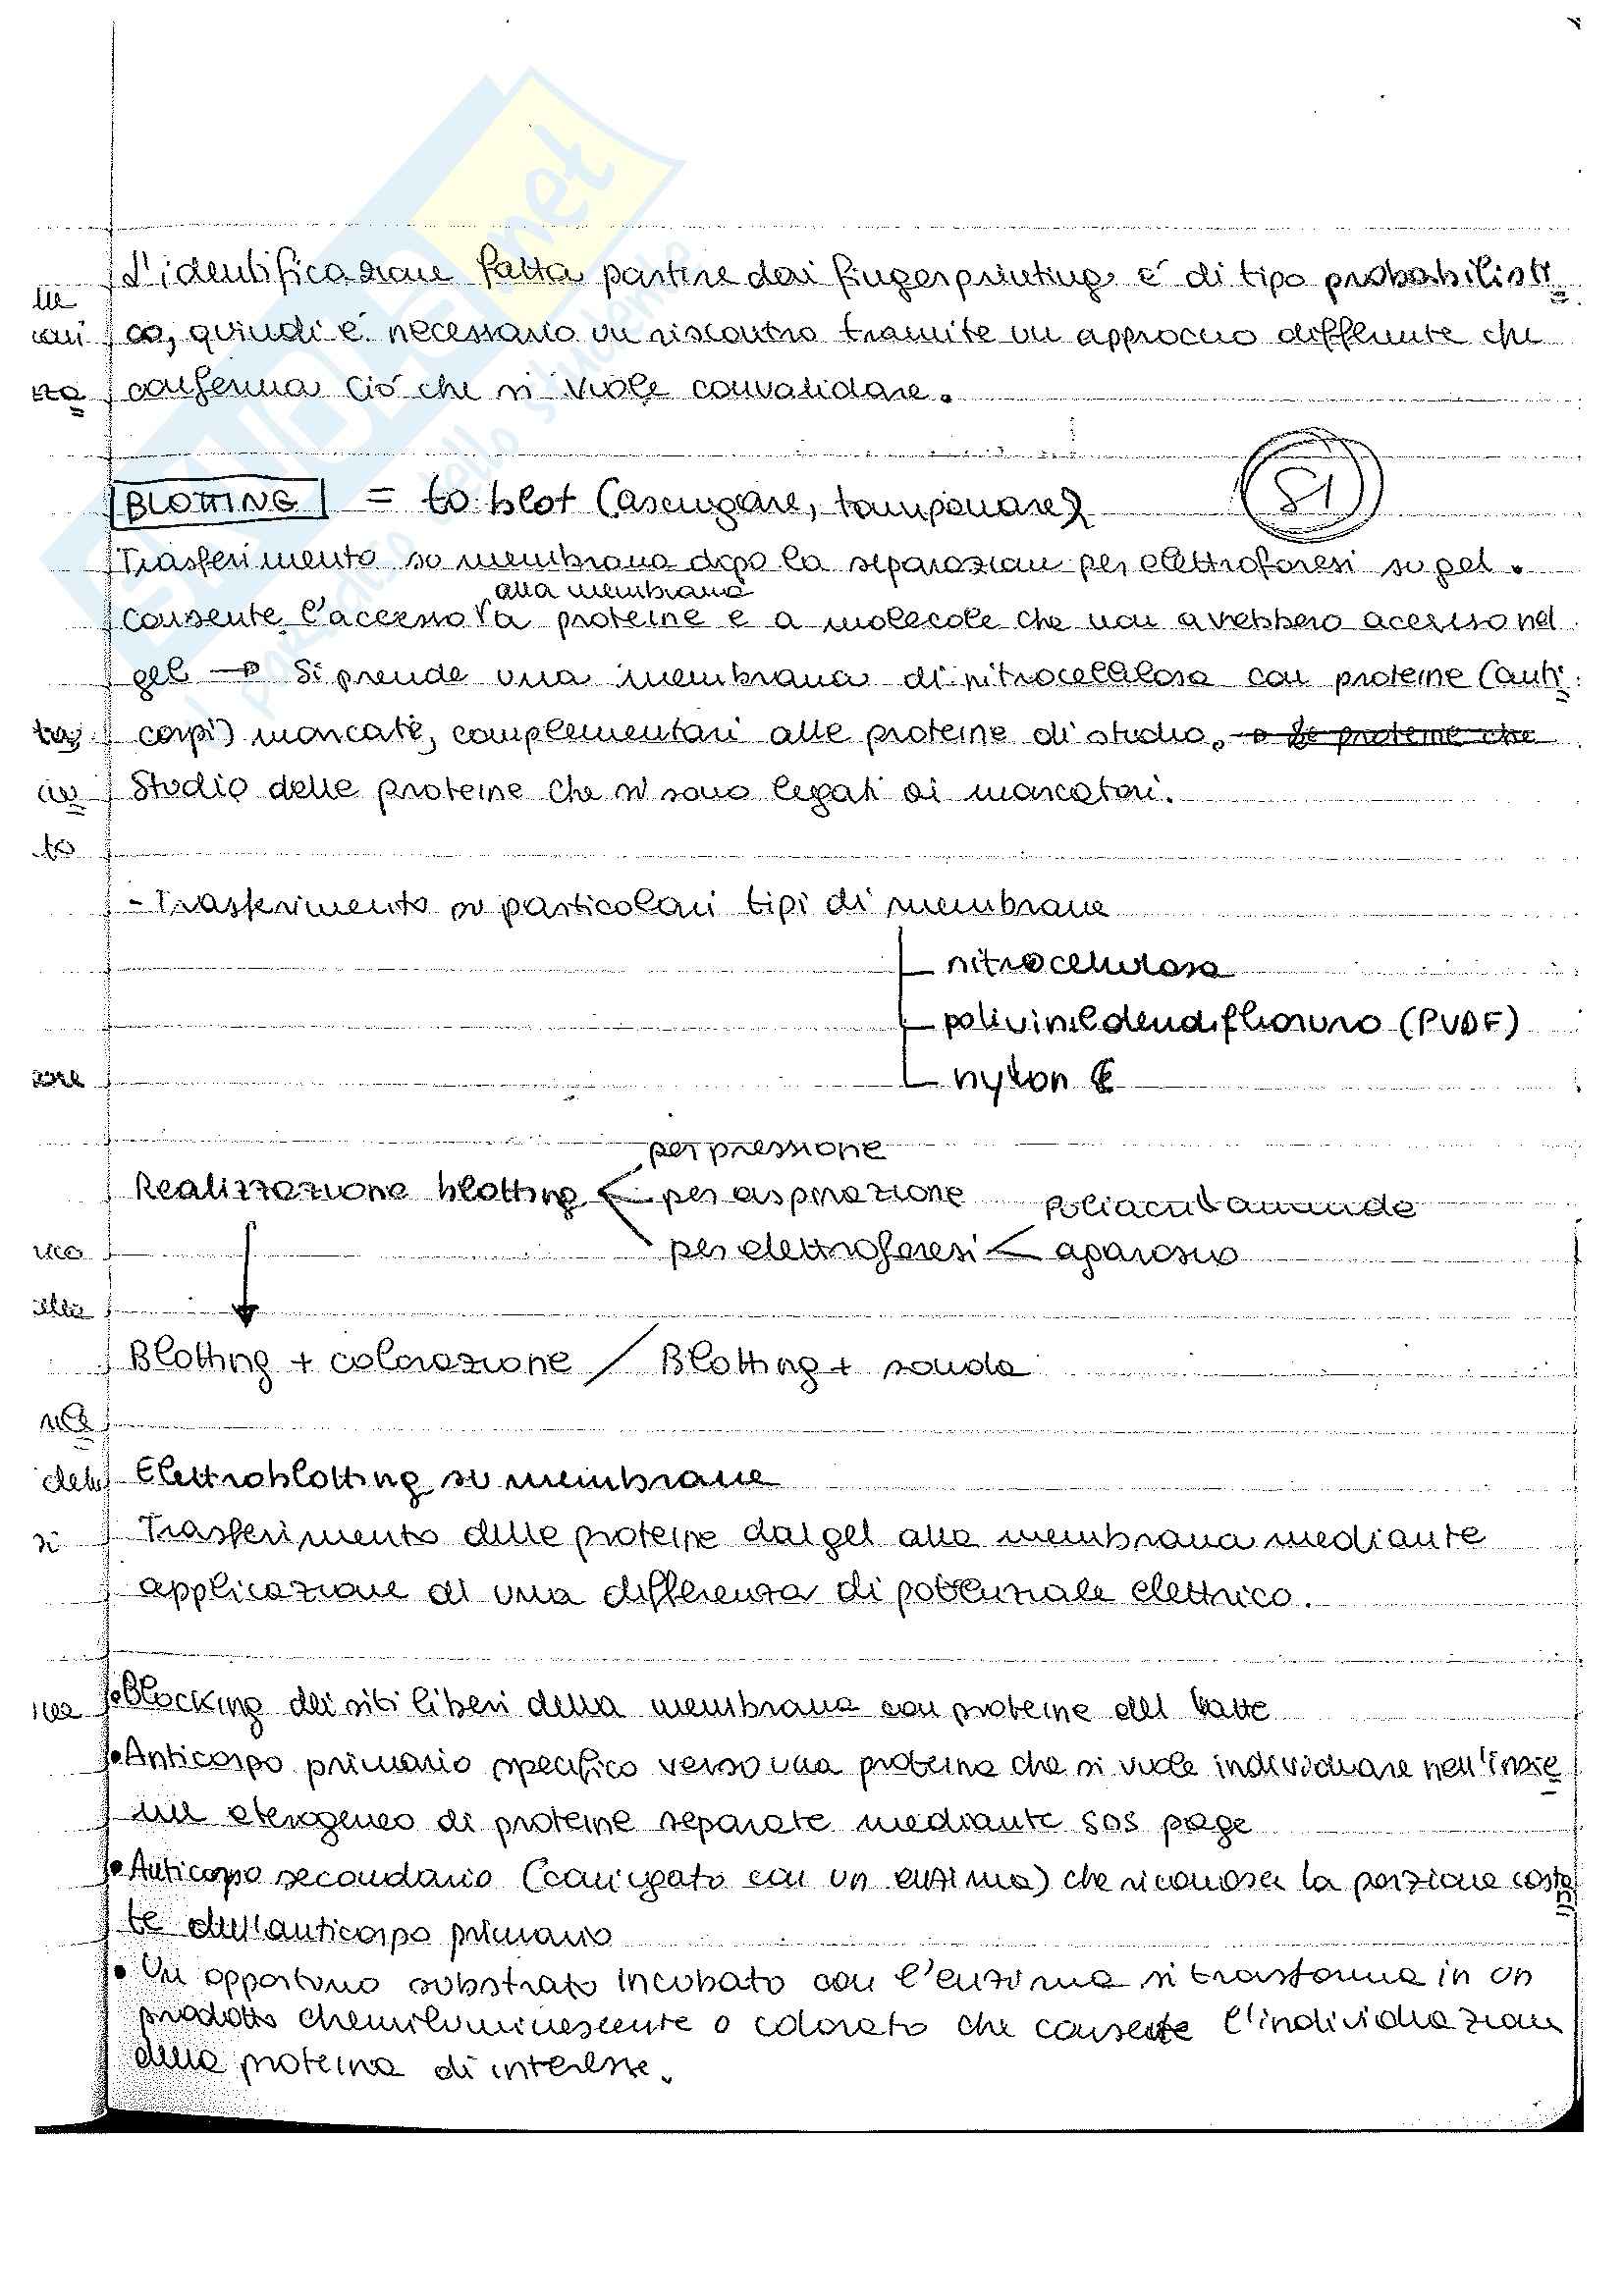 L'identificazione fatta partire dai fingerprinting è di tipo probabilisti
co, quindi è necessario un riscontro tramite un approccio differente che
conferma ciò che si vuole convalidare.
BLOTTING = to blot (asciugare, tamponare) SI
Trasferimento su membrana dopo la separazione per elettroforesi su gel.
alla membrana
Consente l'accesso a proteine e a molecole che non avrebbero accesso nel
gel → Si prende una membrana di nitrocellulosa con proteine (anti
corpi) marcate, complementari alle proteine di studio. → Le proteine che
Studio delle proteine che si sono legati ai marcatori.
- Trasferimento su particolari tipi di membrane
nitrocellulosa
polivinildendifluoruro (PVDF)
nylon
per pressione
Realizzazione blotting per aspirazione
Poliacrilammide
per elettroforesi < agarosio
Blotting + colorazione / Blotting + sonda
Elettroblotting su membrane
Trasferimento delle proteine dal gel alla membrana mediante
applicazione di una differenza di potenziale elettrico.
• Blocking dei siti liberi della membrana con proteine del latte
• Anticorpo primario specifico verso una proteina che si vuole individuare nell'insie
me eterogeneo di proteine separate mediante SDS page
• Anticorpo secondario (coniugato con un enzima) che riconosce la porzione costan
te dell'anticorpo primario
• Un opportuno substrato incubato con l'enzima si trasforma in un
prodotto chemiluminescente o colorato che consente l'individuazione
della proteina di interesse.